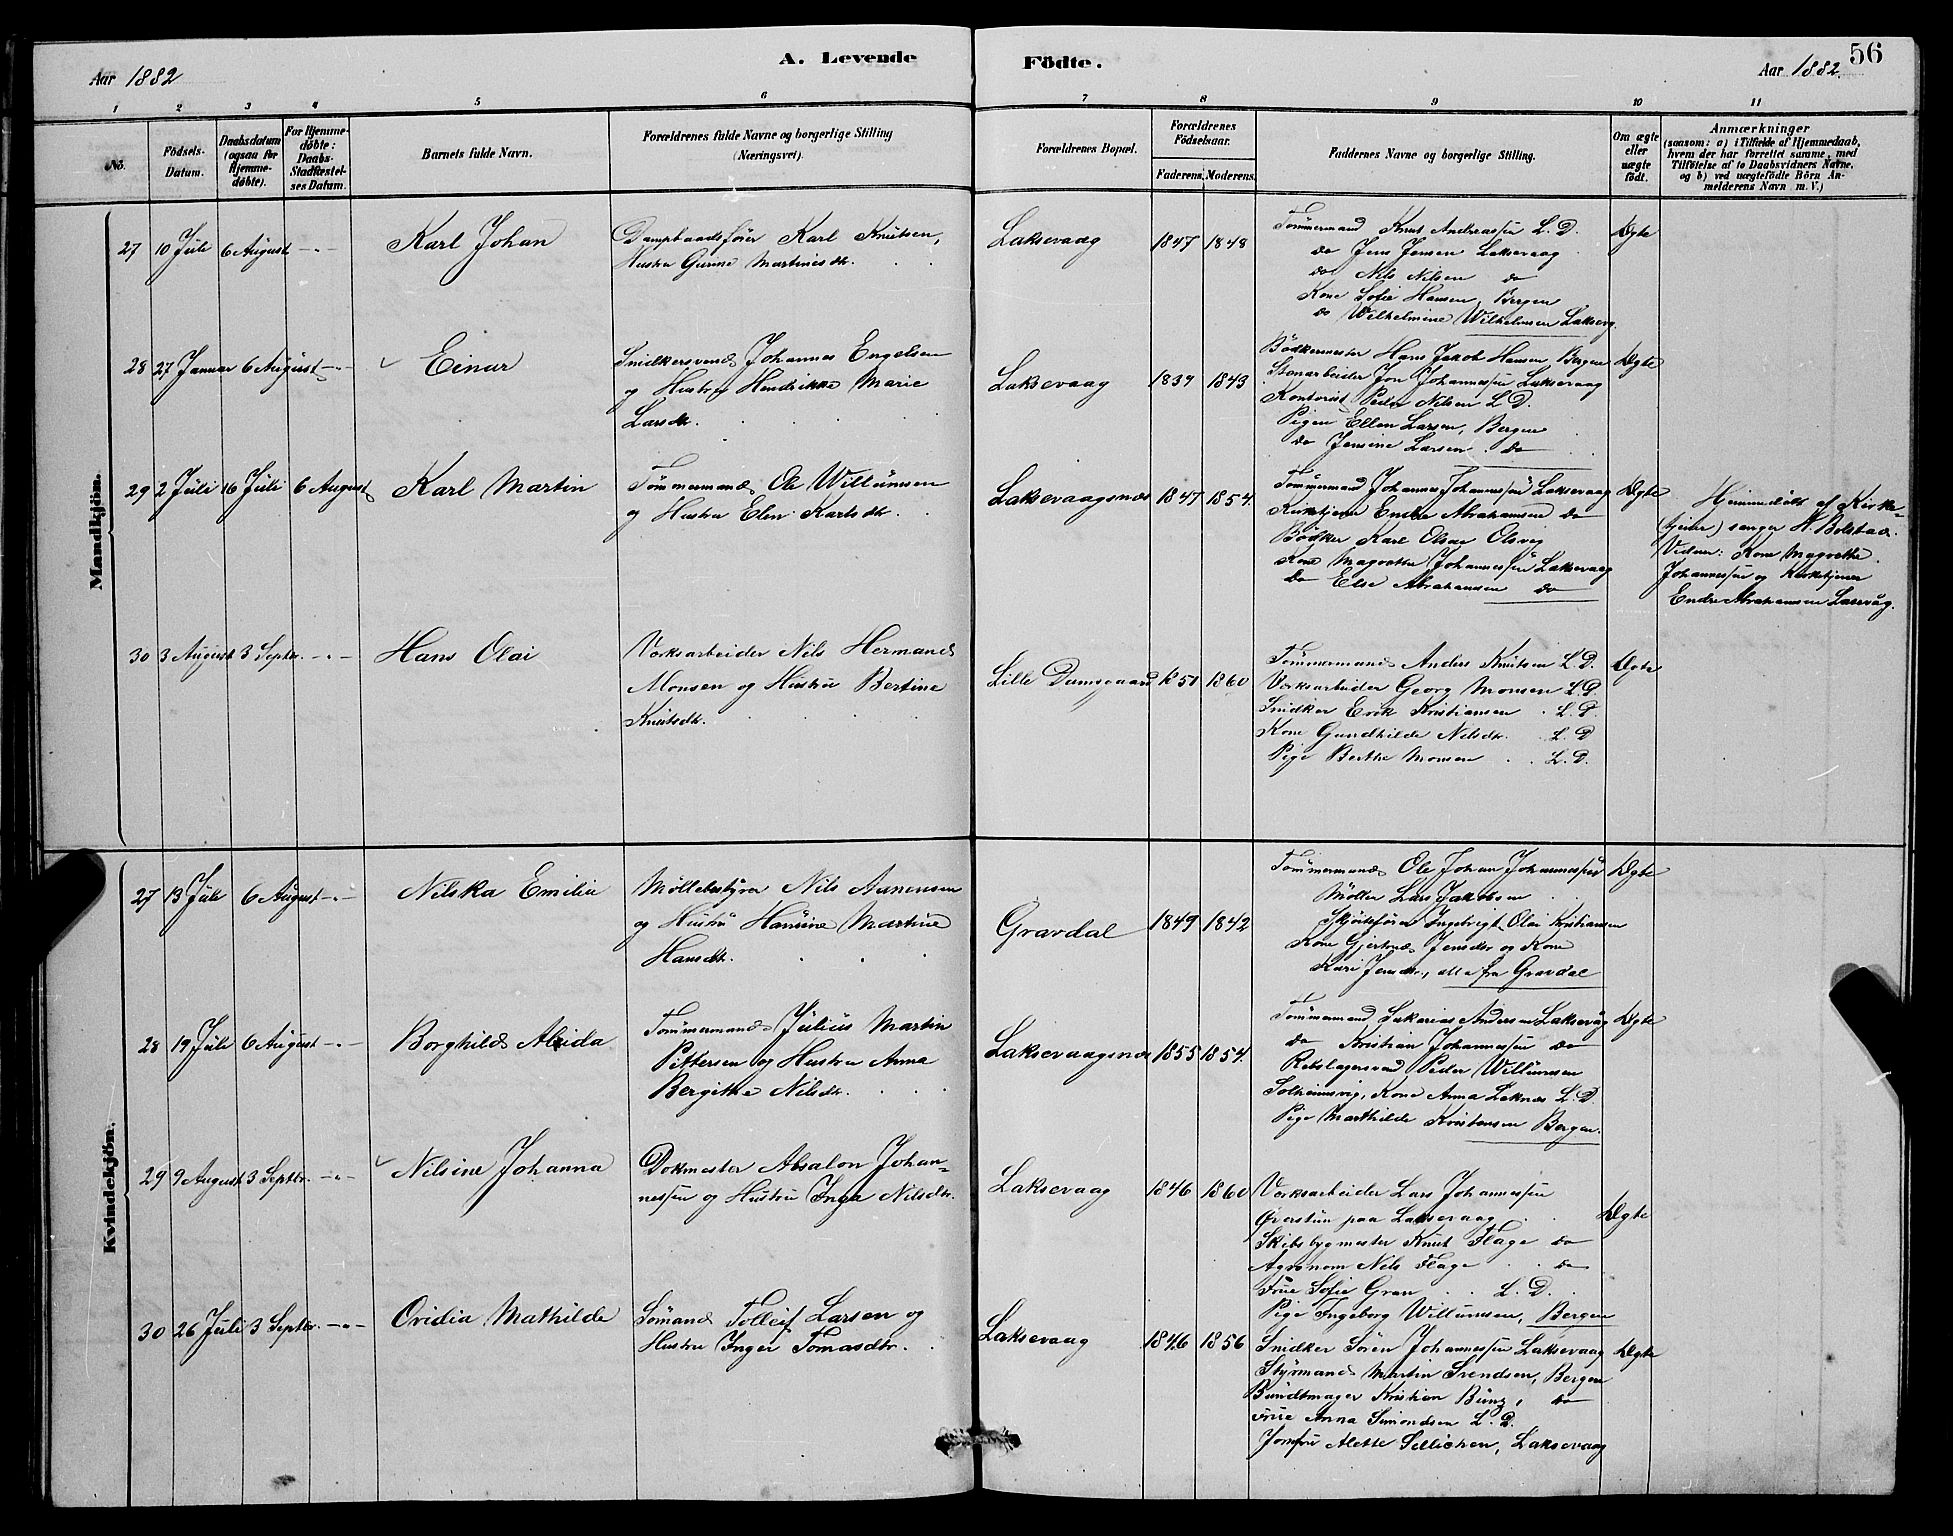 A. Levende
Födte.
56
Aar 1882
Aar 1882.
1 2 3 4 5 6 7 8 9 10 11
No.
Födsels-
Datum.
Daabsdatum
(ogsaa for
Hjemme-
döbte).
For Hjemme-
döbte:
Daabs-
Stadfæstel-
ses Datum.
Barnets fulde Navn.
Forældrenes fulde Navne og borgerlige Stilling
(Næringsvei).
Forældrenes Bopæl.
Forældrenes
Födselsaar.
Faderens. Moderens.
Faddernes Navne og borgerlige Stilling.
Om ægte
eller
uægte
födt.
Anmærkninger
(saasom: a) i Tilfælde af Hjemmedaab,
hvem der har forrettet samme, med
Tilföielse af to Daabsvidners Navne,
og b) ved uægtefödte Börn An-
melderens Navn m. V.)
Mandkjön.
27 10 Juli 6 August -"- Karl Johan
Dampbaadsfører Karl Knutsen,
Hustru Gurine Martinesdtr.
Laksevaag 1847 1848
Tømmermand Knut Andreassen L. D.
do Jens Jensen Laksevaag
do Nils Nilsen do
Kone Sofie Hansen, Bergen
do Wilhelmine Wilhelmsen Laksevg.
Ægte
28 27 Januar 6 August -"- Einar
Snidkersvend Johannes Engelsen
og Hustru Hendrikke Marie
Larsdtr.
Laksevaag 1834 1843
Bödkermester Hans Jakob Hansen, Bergen
Stenarbeider Jon Johannessen Laksevaag
Kontorist Peder Nilsen L. D.
Pigen Ellen Larsen, Bergen
do Jensine Larsen do
Ægte
29 2 Juli 16 Juli 6 August Karl Martin
Tømmermand Ole Willumsen
og Hustru Elen Karlsdtr.
Laksevaagsnes 1847 1854.
Tømmermand Johannes Johannessen Laksevaag
Kirketjener Endre Abrahamsen do
Bödker Karl Olsen Olsvig
Kone Magrethe Johannessen Laksevaag
do Else Abrahamsen do
Ægte
Hjemmedöbt af Kirke-
(tjener) sanger H. Bolstad.
Vidner: Kone Magrethe
Johannessen og Kirketjener
Endre Abrahamsen Laxevåg.
30 3 August 3 Septbr. -"- Hans Olai
Verksarbeider Nils Hermand
Monsen og Hustru Bertine
Knutsdtr.
Lille Damsgaard 1851 1860
Tømmermand Anders Knutsen L. D.
Verksarbeider Georg Monsen L. D.
Snidker Erik Kristiansen L. D.
Kone Gundhilde Nilsdtr. L. D
Pige Berthe Monsen L. D.
Ægte
Kvindekjön.
27 13 Juli 6 August -"- Nilska Emilie
Møllebestyrer Nils Aanensen
og Hustru Hansine Martine
Hansdtr.
Gravdal 1849 1842
Tømmermand Ole Johan Johannessen
Møller Lars Jakobsen
Skøiteförer Ingebrigt Olai Kristiansen
Kone Gjertrud Jensdtr og Kone
Kari Jensdtr., alle fra Gravdal
Ægte
28 19 Juli 6 August -"- Borghild Alvida
Tømmermand Julius Martin
Pettersen og Hustru Anna
Bergitha Nilsdtr.
Laksevaagsnes 1855 1854.
Tømmermand Sakarias Andersen Laksevåg
do Kristian Johannessen do
Rebslagersvend Peder Willumsen
Solheimsvig, Kone Anna Leknes L. D.
Pige Marthilde Kristensen Bergen.
Ægte
29 9 August 3 Septbr. -"- Nilsine Johanna
Dokmester Absalon Johan-
nessen og Hustru Inga Nilsdtr.
Laksevaag 1846 1860
Verksarbeider Lars Johannessen
Øvrestun paa Laksevaag
Skibsbygmester Knut Flage do
Agronom Nils Flage do
Frue Sofie Gran L. D.
Pige Ingeborg Willumsen, Bergen
Ægte
30 26 Juli 3 Septbr. -"- Ovidia Mathilde
Sømand Tolleif Larsen og
Hustru Inger Tomasdtr.
Laksevaag 1846 1856
Snidker Sören Johannessen Laksevaag
Styrmand Martin Svendsen, Bergen
Bundtmager Kristian Bünz, do
Frue Anna Simondsen L. D.
Jomfru Alette Sellichen, Laksevaag
Ægte